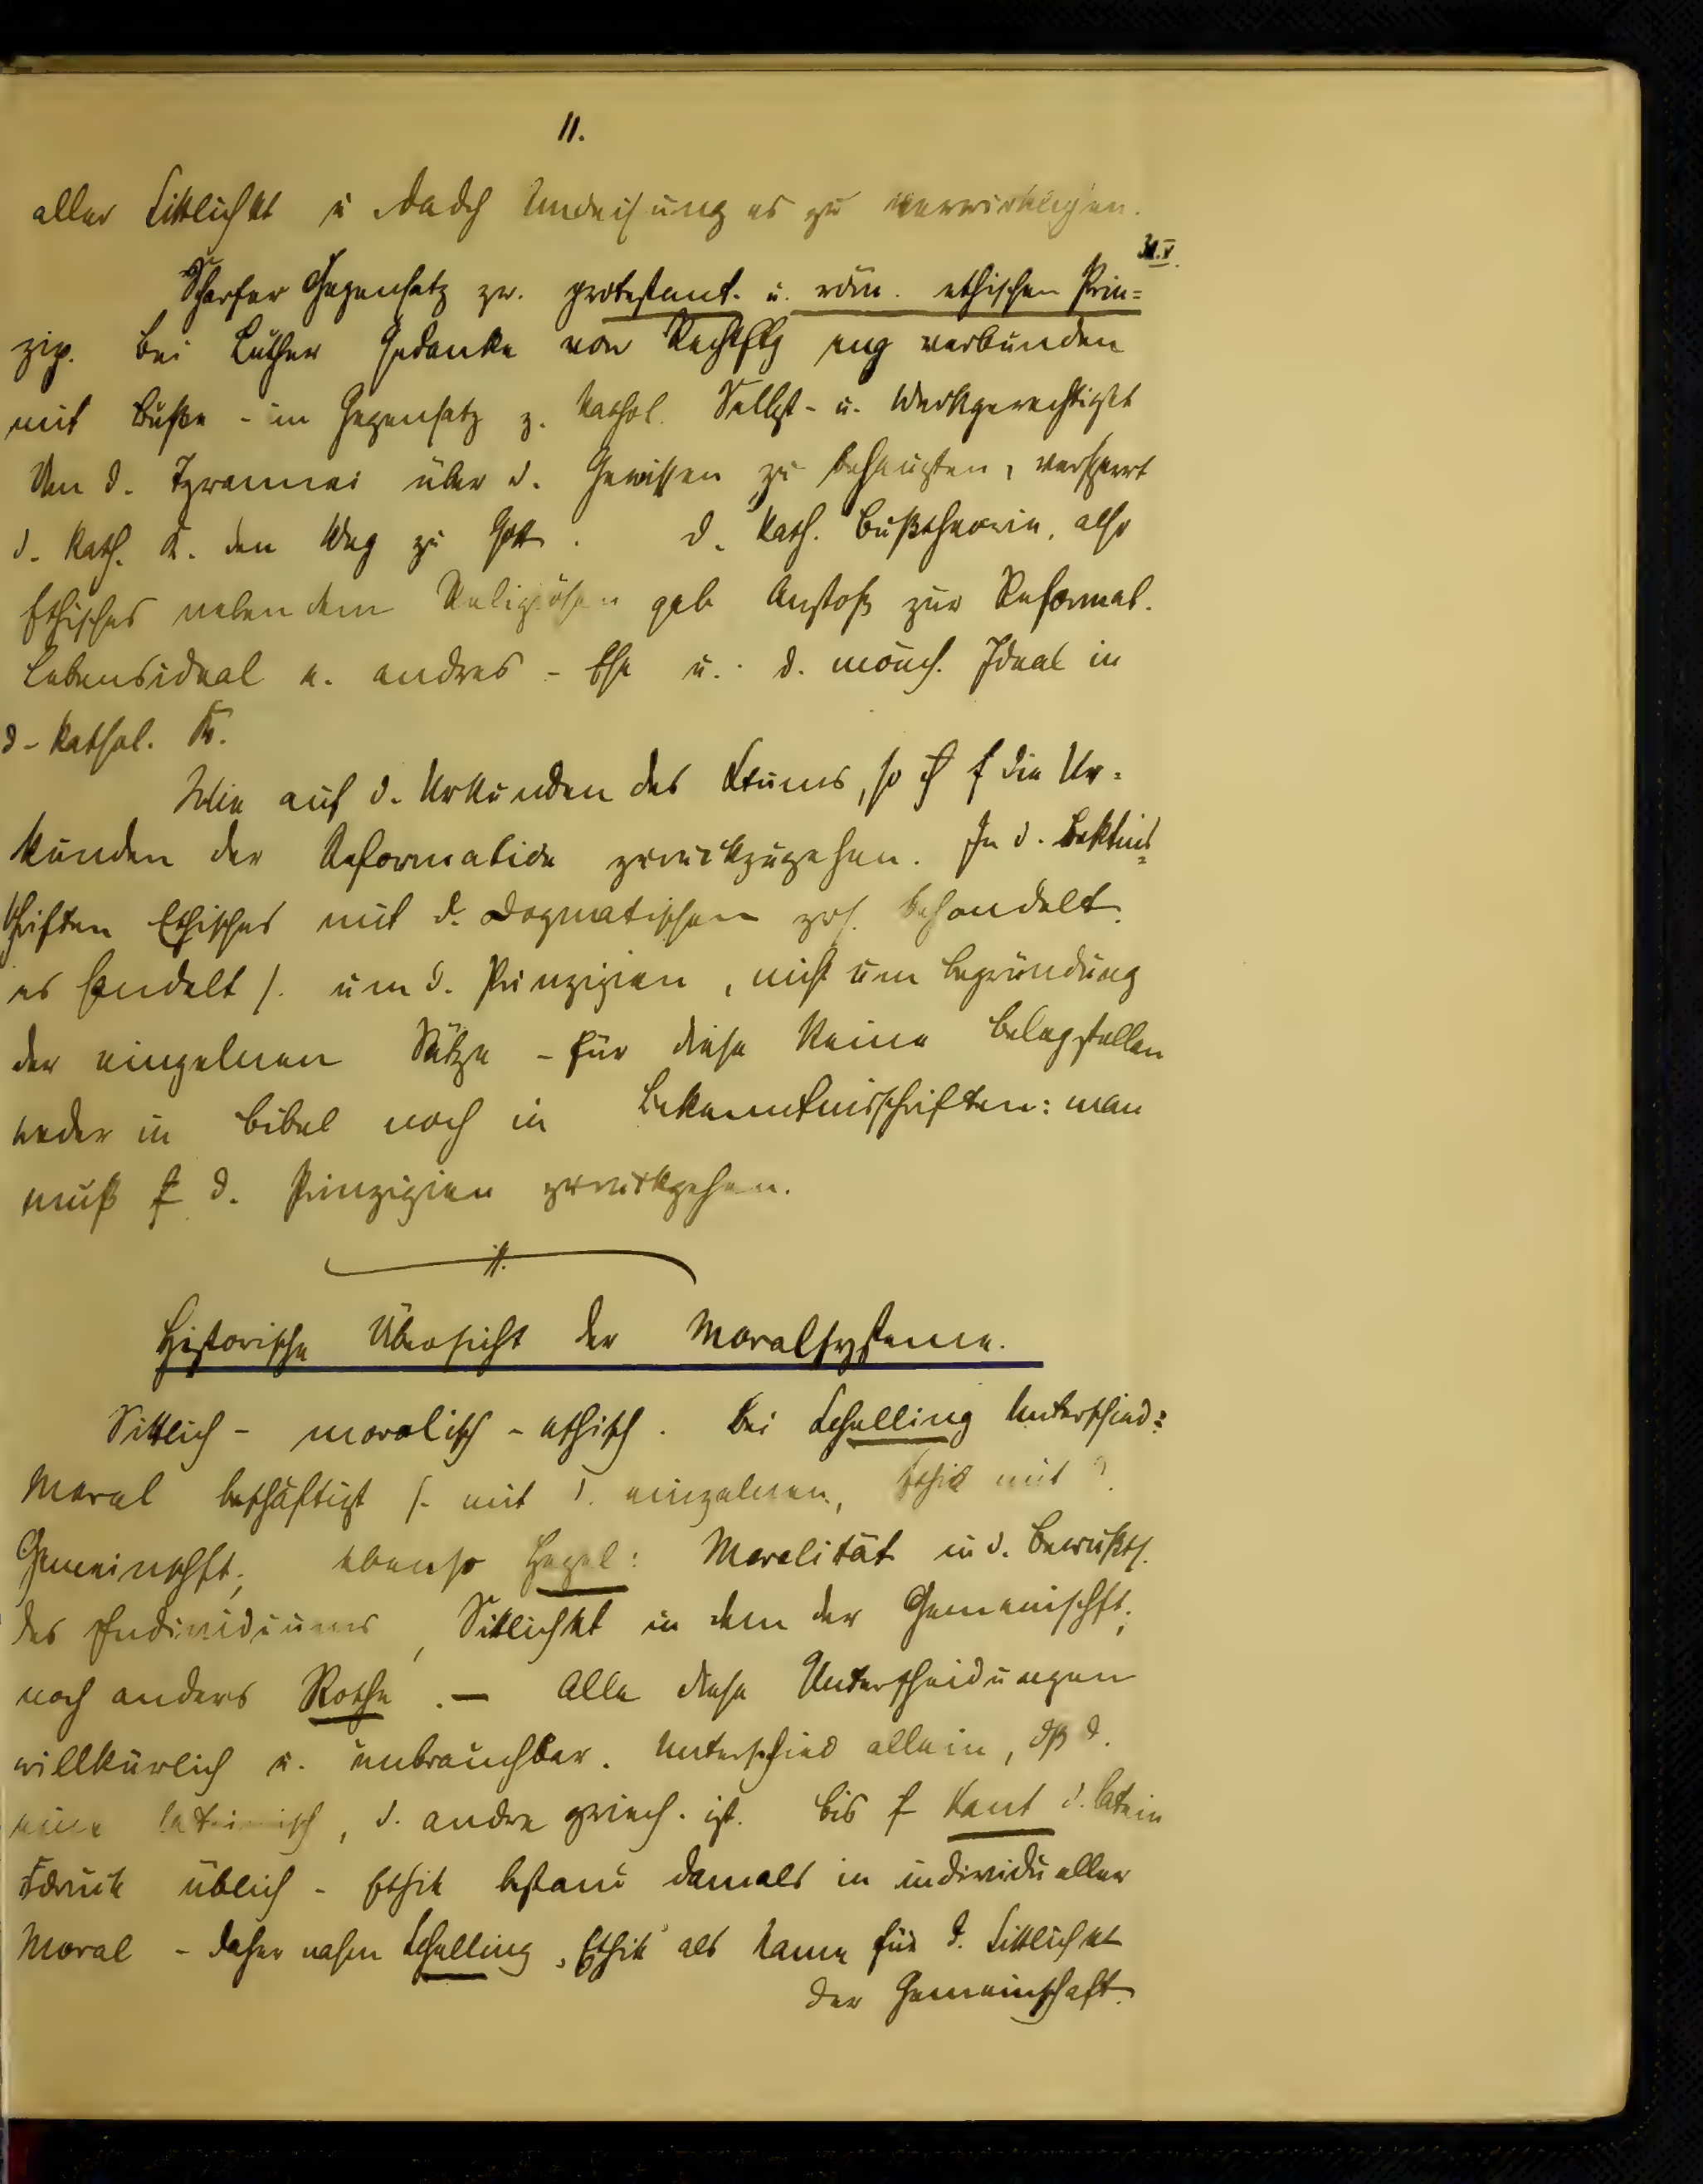 11.
aller Sittlichkt u. dadch Anweisung es zu verwirklichen.
31.V.
Scharfer Gegensatz zw. protestant. u. röm. ethischen Prin-
zip. Bei Luther Gedanke von Rechtftg eng verbunden
mit Buße - im Gegensatz z. kathol. Selbst- u. Werkgerechtigkt
Um d. Tyrannei über d. Gewissen zu behaupten, versperrt
d. kath. K. den Weg zu Gott. D. kath. Bußtheorie, also
Ethisches neben dem Religiösen gab Anstoß zur Reformat.
Lebensideal e. andres - Ehe u. d. mönch. Ideal in
d. kathol. K.
Wie auf d. Urkunden des Xtums, so ist f die Ur-
kunden der Reformation zurückzugehen. In d. Bektnis-
schriften Ethisches mit d. Dogmatischen zus. behandelt.
es handelt s. um d. Prinzipien, nicht um Begründung
der einzelnen Sätze - für diese keine Belegstellen
weder in Bibel noch in Bekenntnisschriften: man
muß f d. Prinzipien zurückgehen.
Historische Übersicht der Moralsysteme.
Sittlich - moralisch - ethisch. Bei Schelling Unterschied:
Moral beschäftigt s. mit d. einzelnen, Ethik mit d.
Gemeinschft; ebenso Hegel: Moralität in d. Bewußts.
des Individuums, Sittlichkt in dem der Gemeinschft;
noch anders Rothe. — Alle diese Unterscheidungen
willkürlich u. unbrauchbar. Unterschied allein, dß d.
eine lateinisch, d. andre griech. ist. Bis f Kant d. latein
üblich - Ethik bestand damals in individueller
Moral - daher nahm Schelling „Ethik" als Name für d. Sittlichkt
der Gemeinschaft.